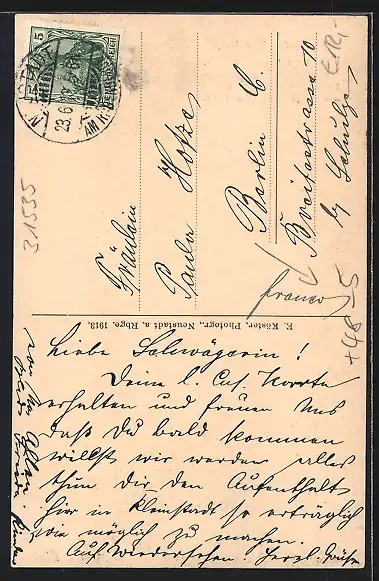 5
DEUTSCHES REICH
NEUSTADT
23.6
AM R
31535
Fräulein
Paula Hotze
Berlin C.
Breitestrasse 10
by Schulze
franco
+48-5
F. Köster, Photogr., Neustadt a. Rbge. 1913.
Liebe Schwägerin!
Deine l. Karte
erhalten und freuen uns
daß Du bald kommen
willst wir werden alles
thun dir den Aufenthalt
hier in Kleinstadt so erträglich
wie möglich zu machen.
Auf Wiedersehen. Herzl. Grüße
von
Kinder